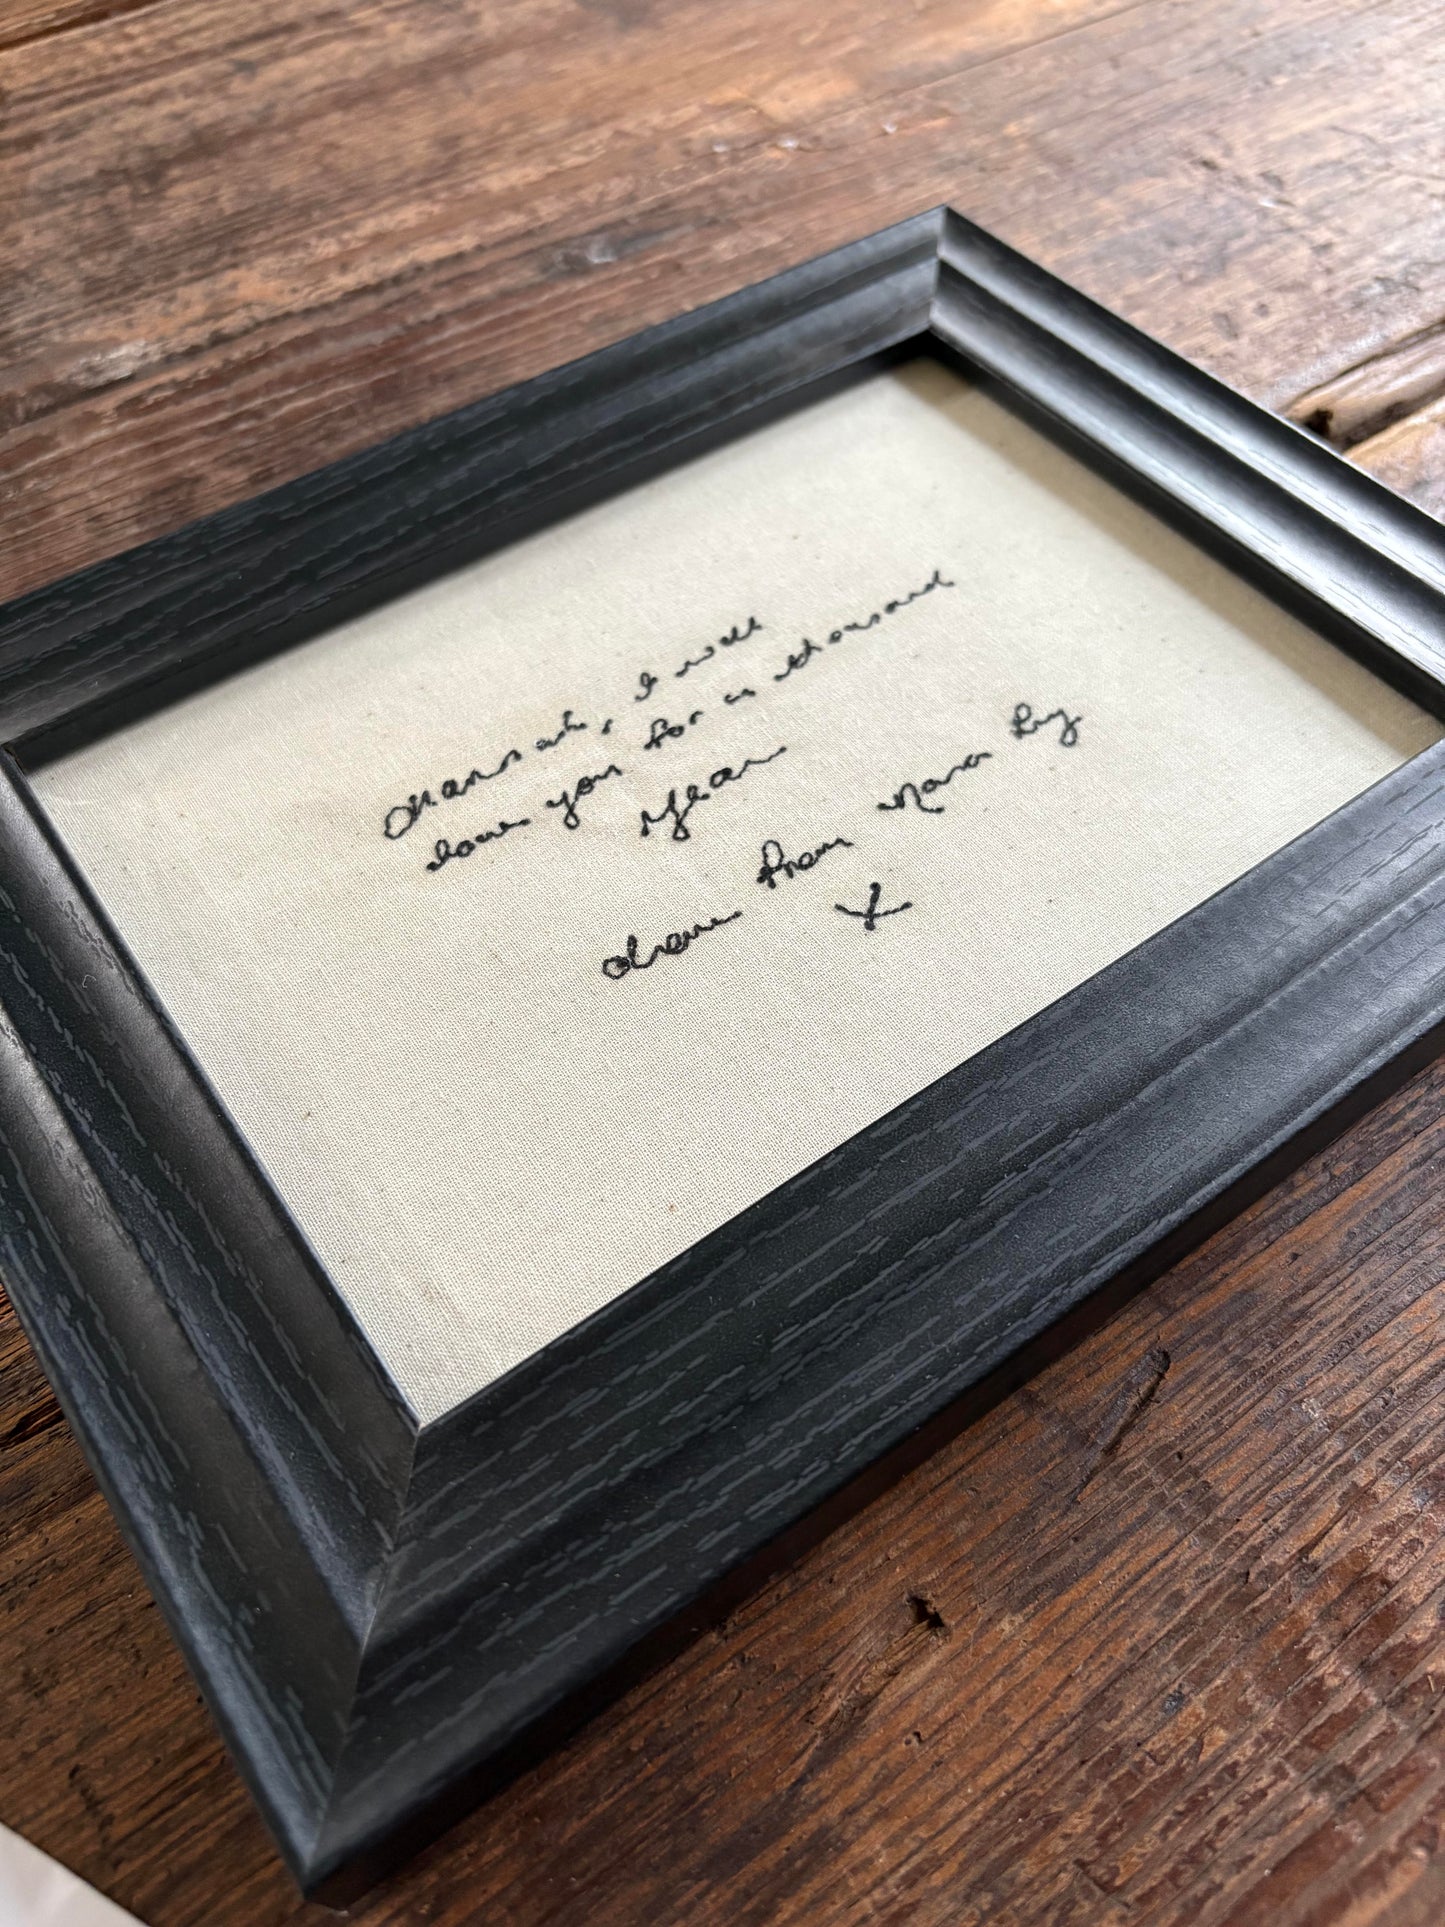 Hannah, I will
love you for a thousand
years
love from Nana Ivy
X